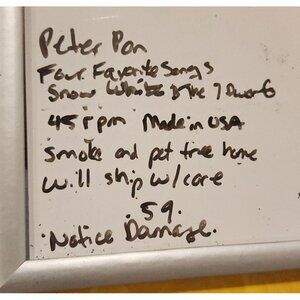 Peter Pan
Four Favorite Songs
Snow White & The 7 Dwarfs
45 rpm Made in USA
Smoke and pet free home
will ship w/care
.59.
Notice Damage.